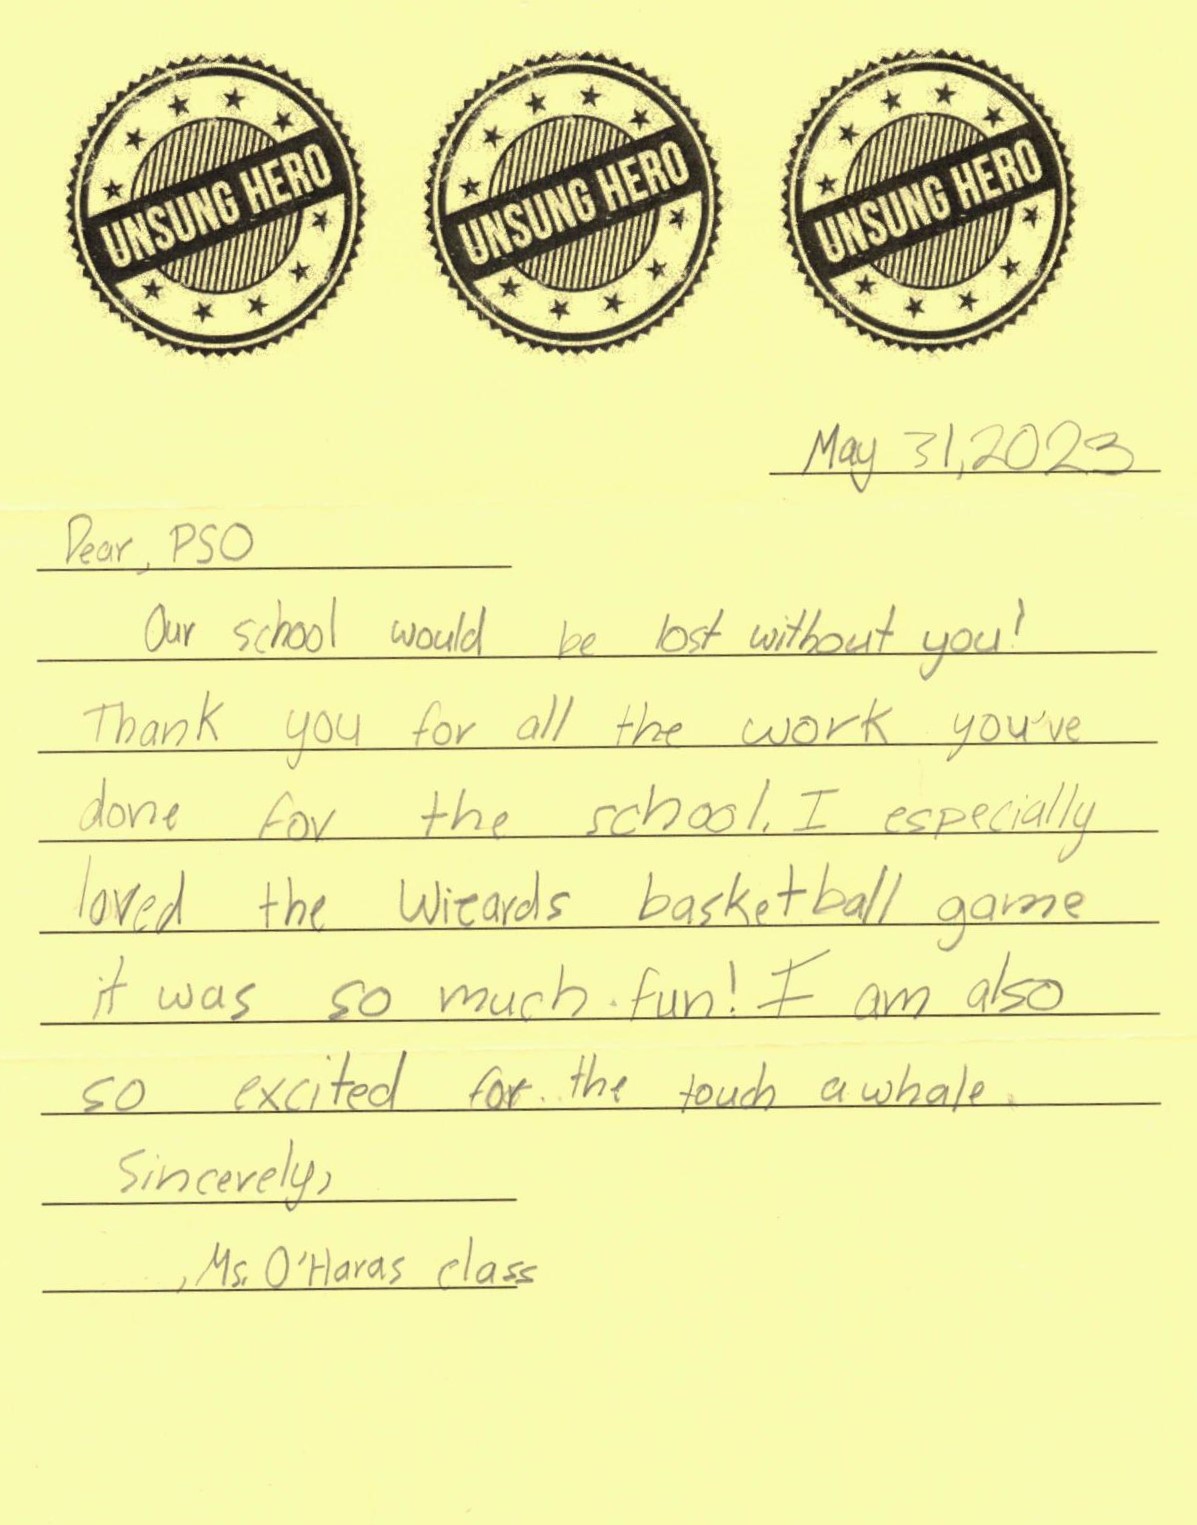 UNSUNG HERO UNSUNG HERO UNSUNG HERO
May 31, 2023
Dear, PSO
Our school would be lost without you!
Thank you for all the work you've
done for the school. I especially
loved the Wizards basketball game
it was so much fun! I am also
so excited for the touch a whale.
Sincerely,
, Ms. O'Haras class